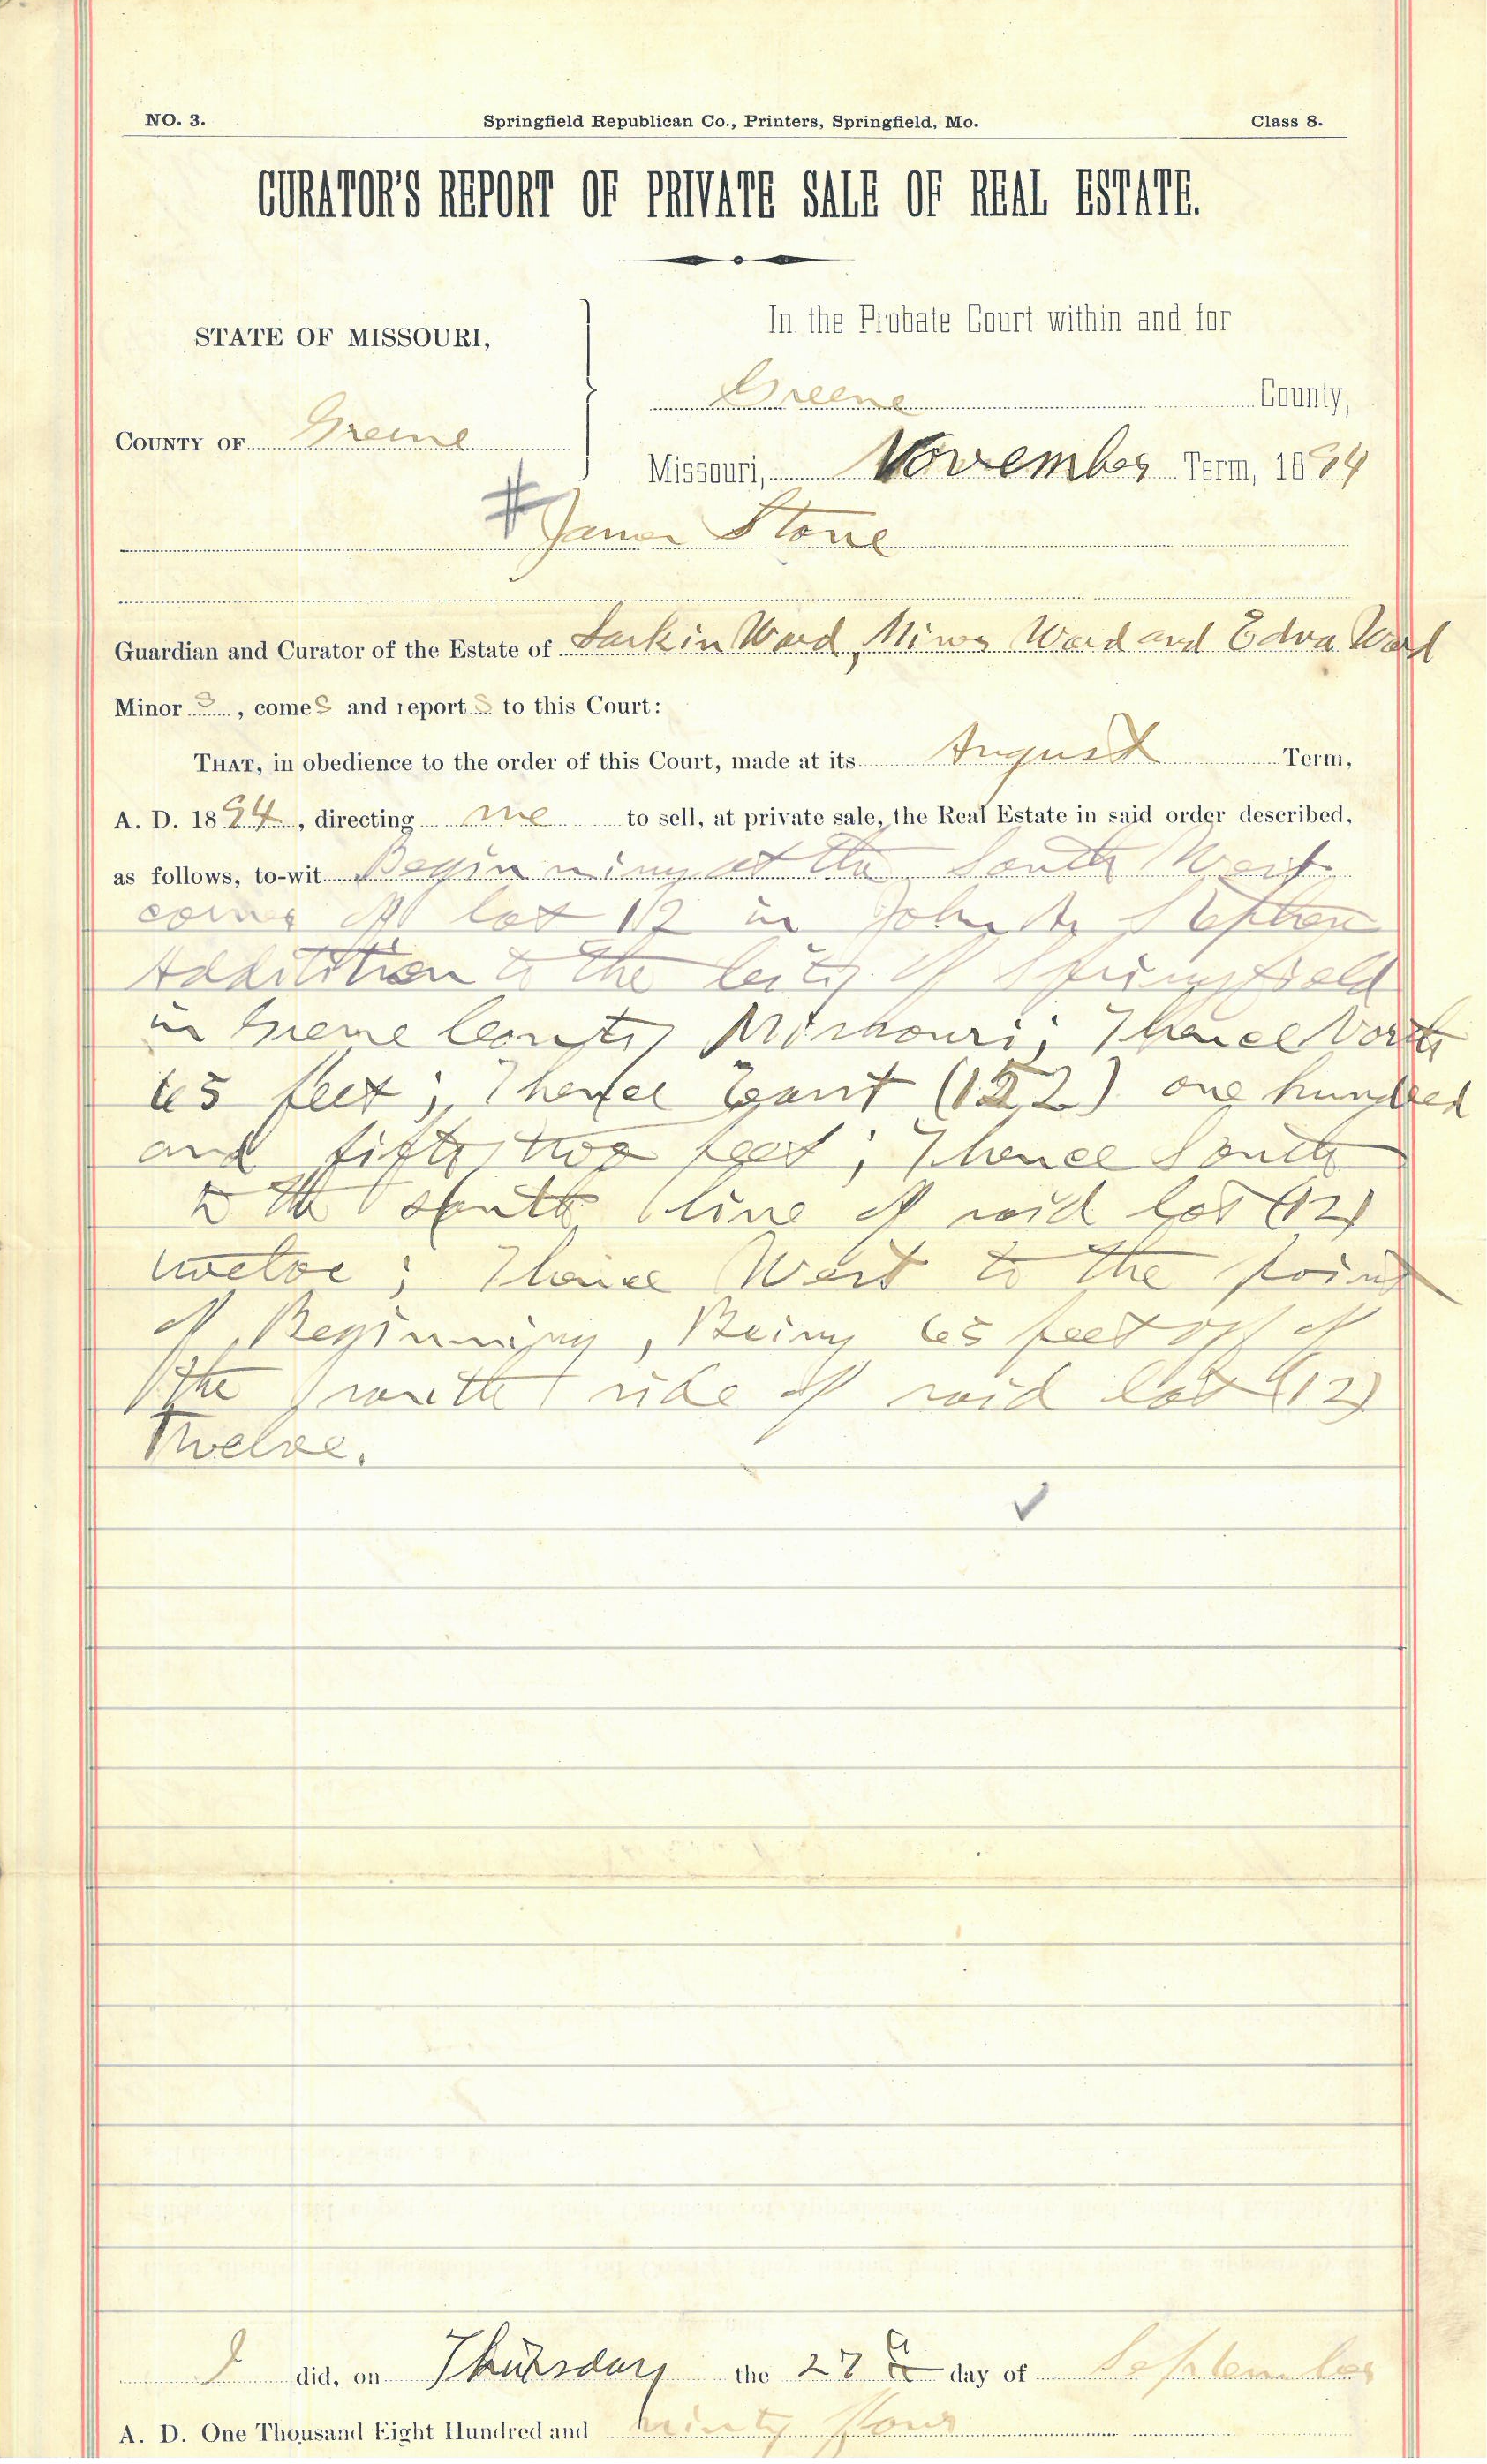 NO. 3. Springfield Republican Co., Printers, Springfield, Mo. Class 8.
CURATOR'S REPORT OF PRIVATE SALE OF REAL ESTATE.
STATE OF MISSOURI,
COUNTY OF Greene
In the Probate Court within and for
Greene County,
Missouri, November Term, 1894
# James Stone
Guardian and Curator of the Estate of Larkin Ward, Ward and Edna Ward
Minor s, comes and reports to this Court:
THAT, in obedience to the order of this Court, made at its August Term,
A. D. 1894, directing me to sell, at private sale, the Real Estate in said order described,
as follows, to-wit Beginning at the South West
corner of lot 12 in John Stephen
Addition to the City of Springfield
in Greene County Missouri; Thence North
65 feet; Thence East (152) one hundred
and fifty two feet; Thence South
to the south line of said lot (12)
twelve; Thence West to the point
of Beginning, Being 65 feet off of
the south side of said lot (12)
Twelve.
I did, on Thursday the 27th day of September
A. D. One Thousand Eight Hundred and ninty four